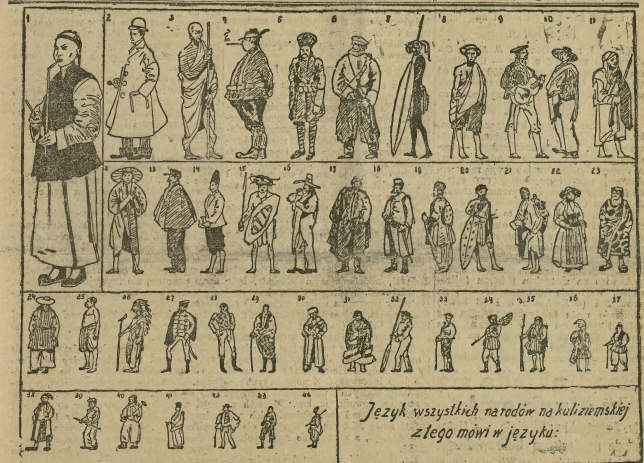 1 2 3 4 5 6 7 8 9 10 11
13 14 15 16 17 18 19 20 21 22 23
24 25 26 27 28 29 30 31 32 33 34 35 36 37
38 39 40 41 42 43 44
Język wszystkich narodów na kuli ziemskiej
złego mówi w języku: